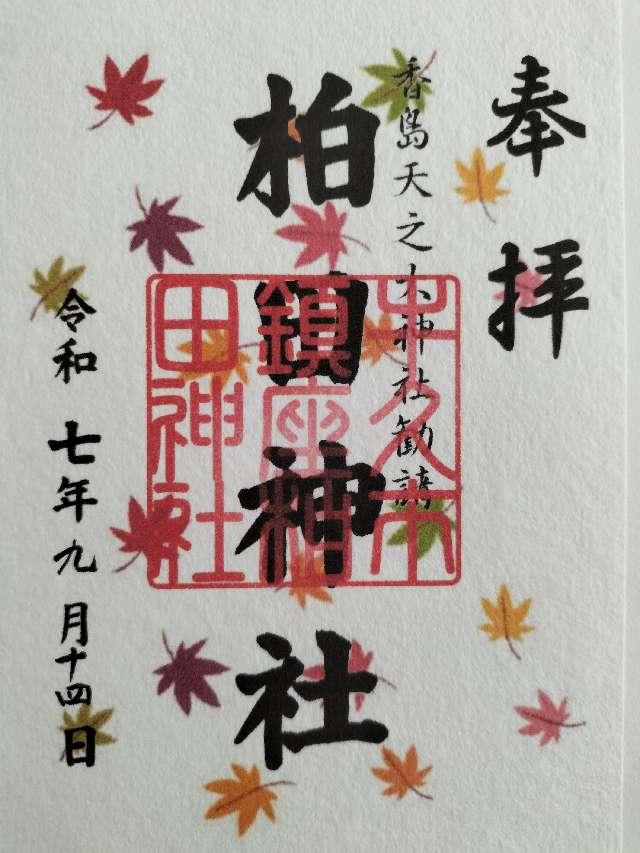 奉拝
香島天之大神社勧請
柏田神社
牛久市
鎮座柏
田神社
令和七年九月十四日